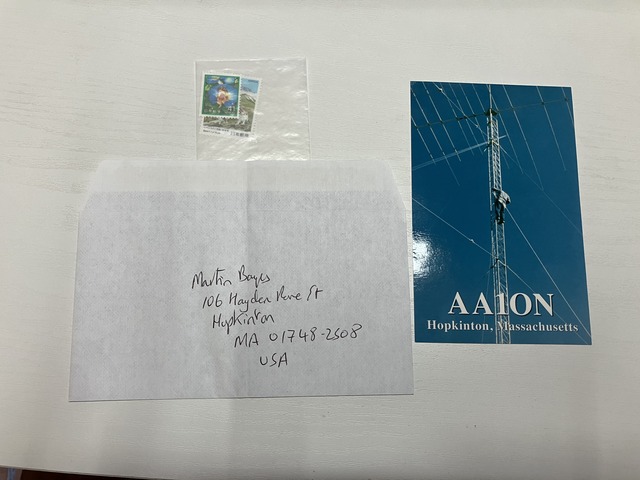 Martin Bayes
106 Hayden Rowe St
Hopkinton
MA 01748-2508
USA
AA1ON
Hopkinton, Massachusetts